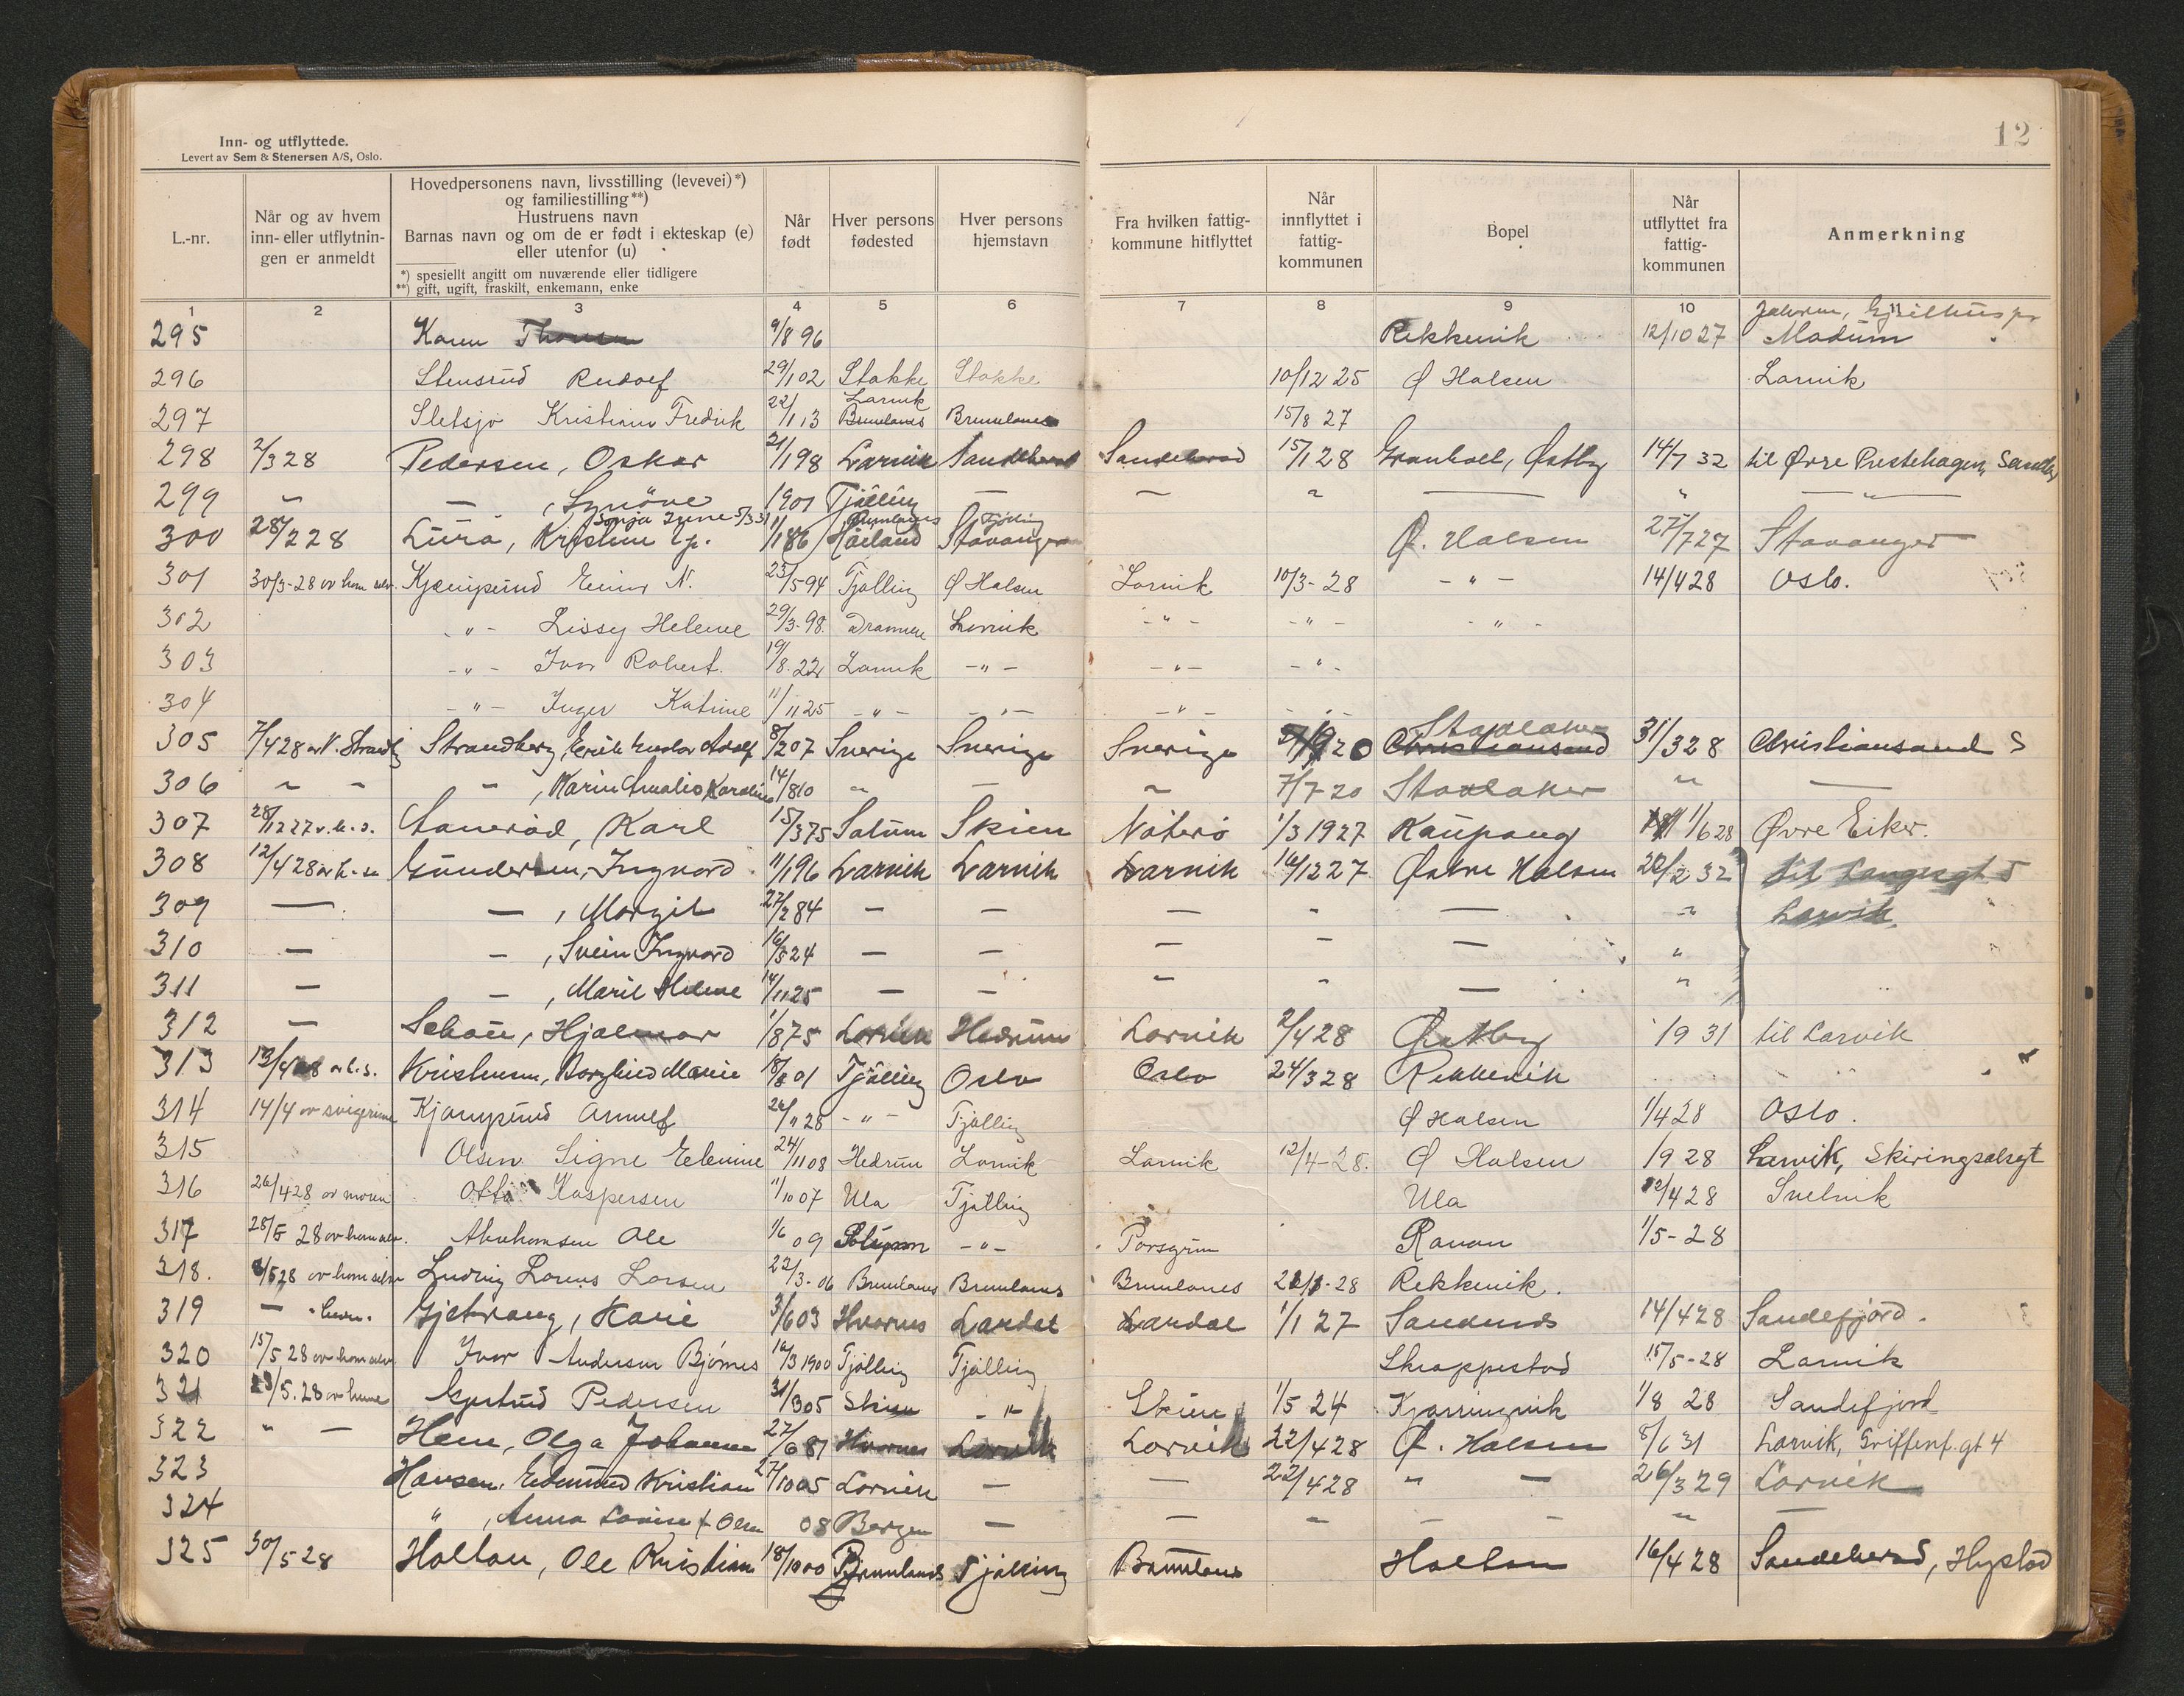 Inn- og utflyttede.
Levert av Sem & Stenersen A/S, Oslo.
12
L.-nr.
Når og av hvem inn- eller utflytnin-gen er anmeldt
Hovedpersonens navn, livsstilling (levevei)*)
og familiestilling**)
Hustruens navn
Barnas navn og om de er født i ekteskap (e)
eller utenfor (u)
*) spesiellt angitt om nuværende eller tidligere
**) gift, ugift, fraskilt, enkemann, enke
Når født
Hver persons fødested
Hver persons hjemstavn
Fra hvilken fattig-kommune hitflyttet
Når innflyttet i fattig-kommunen
Bopel
Når utflyttet fra fattig-kommunen
Anmerkning
1 2 3 4 5 6 7 8 9 10 11
295 Karen 9/8 96 Rekkevik 12/10 27 Modum
296 Stensrud Rudolf 29/1 02 Stokke Stokke 10/12 25 Ø Halsen Larvik
297 Sletsjø Kristian Fredrik 22/1 13 Larvik Brunlanes Brunlanes 15/8 27
298 2/3 28 Pedersen, Oskar 21/1 98 Larvik Sandeherad Sandeherad 15/1 28 Granholt, Østby 14/7 32 til Øvre Prestehagen, Sandeh
299 " — , Synöve 1901 Tjölling — — " — " — " —
300 28/2 28 Lura, Kristine 1/1 86 Håland Stavanger Ø. Halsen 27/7 27 Stavanger
301 30/3-28 av ham selv. Kjempsund Einar N. 23/5 94 Tjølling Ø Halsen Larvik 10/3-28 - " - 14/4 28 Oslo.
302 - " - Lissy Helene 29/3-98. Drammen Larvik - " - - " - - " -
303 - " - Ivar Robert. 19/8.22 Larvik - " - - " - - " -
304 - " - Inger Katrine 11/11 25 - " - - " - - " - - " -
305 7/4 28 av V. Strandb Strandberg, Erik Gustav Adolf 8/2 07 Sverige Sverige Sverige 20 Christiansand Stavlaker 31/3 28 Christiansand S
306 " - — , Karin Amalie Karoline 14/8 10 " — " 7/7-20 Stavlaker " —
307 28/12 27 v. h. s. Saneröd, Karl 15/3 75 Solum Skien Nøterø 1/3 1927 Kaupang 1/6 28 Øvre Eiker.
308 12/4 28 av h. se Gundersen, Ingvard 11/1 96 Larvik Larvik Larvik 16/12 27 Østre Halsen 20/2 32 til Langesgt 5
309 — — , Margit 27/2 84 — — — " — " Larvik.
310 — — , Svein Ingvard 16/5 24 — — — - — "
311 — — , Marie Helene 14/11 25 — — - - — "
312 — Schau, Hjalmar 1/8 75 Larvik Hedrum Larvik 2/4 28 Østby 1/9 31 til Larvik
313 13/4 28 av h. s. Kristensen, Borghild Marie 18/8 01 Tjölling Oslo Oslo 24/3 28 Rekkevik
314 14/4 av svigerinne Kjempsund Arnulf - " - Tjølling Ø Halsen 1/4 28 Oslo.
315 Olsen Signe Elenine 24/11 08 Hedrum Larvik Larvik 12/4-28. Ø Halsen 1/9 28 Larvik, Skiringsalsgt
316 26/4 28 av moren Otto Kaspersen 11/10 07 Ula Tjølling Ula 12/4 28 Svelvik
317 28/5 28 av ham selv. Abrahamsen Ole 1/6 09 - " - Porsgrun Ranan 1/5-28
318. 8/5 28 av ham selv Ludvig Larsen 22/3-06 Brunlanes Brunlanes Brunlanes -28 Rekkevik.
319 — Gjetvang, Karie 3/6 03 Hvarnes Lardal Lardal 1/1 27 Sandnes 14/4 28 Sandefjord.
320 15/5 28 av ham selv Ivar Andersen Bjørnes 16/3 1900 Tjølling Tjølling Skreppestad 15/5-28 Larvik
321 23/5.28 av henne Gjertrud Pedersen 31/3 05 Skien - " - Skien 1/5 24 Kjerringvik 1/8 28 Sandefjord
322 " — Hem, Olga Johanne 27/6 81 Hvarnes Larvik Larvik 22/4 28 Ø. Halsen 8/6 31 Larvik, Griffenf.gt 4
323 Hansen, Edmund Kristian 27/10 05 Larvik — — 22/4 28 " — 26/3 29 Larvik
324 " , Anna Lovise f Olsen 08 Bergen — — - - — " —
325 30/5 28 Holtan, Ole Kristian 18/10 00 Brunlanes Tjölling Brunlanes Holtan 16/4 28 Sandeherad, Hystad